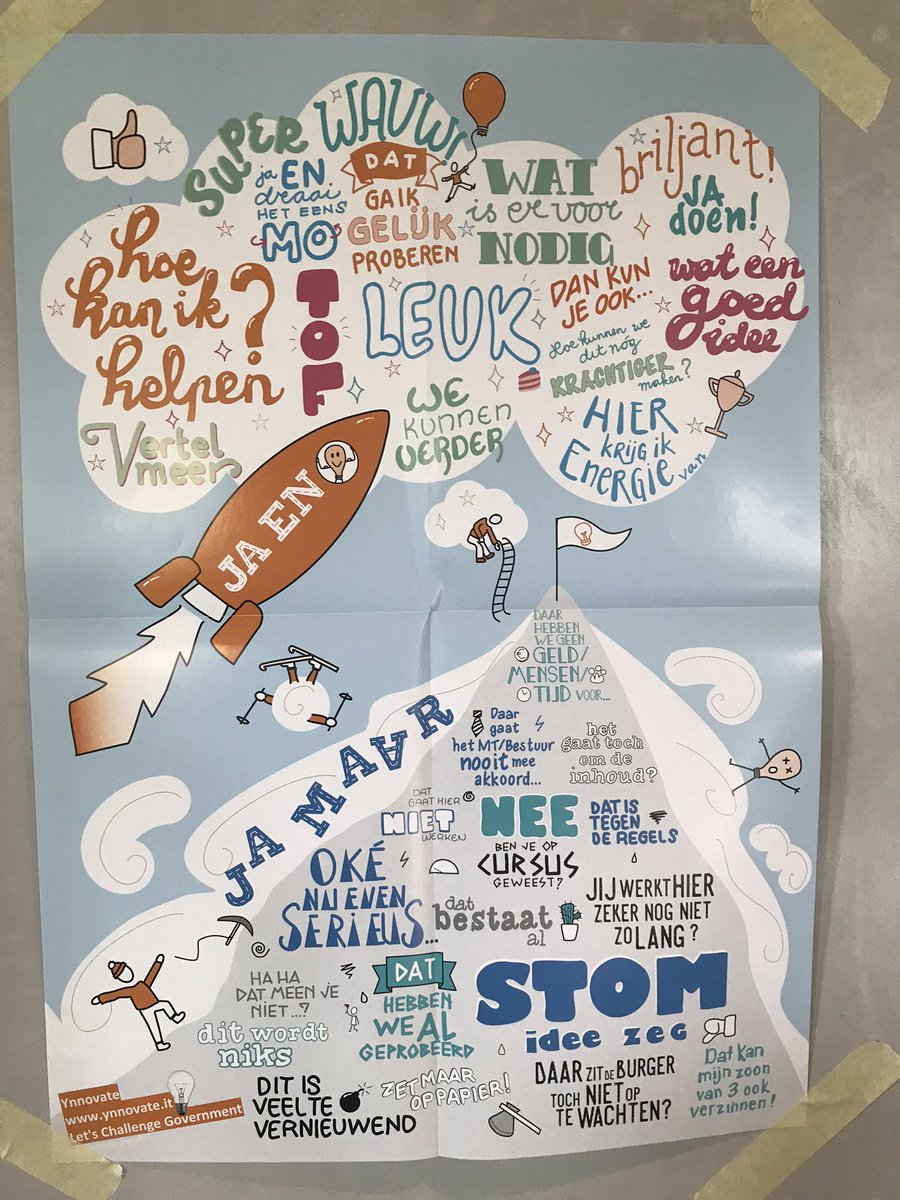 SUPER
WAUW!
ja EN
draai
HET EENS
MO
DAT
GA IK
GELIJK
PROBEREN
WAT
is er voor
NODIG
briljant!
JA
doen!
hoe
kan ik
helpen?
TOF
LEUK
DAN KUN
JE OOK...
wat een
goed
idee
Hoe kunnen we
dit nóg
KRACHTIGER
maken?
Vertel
meer
WE
KUNNEN
VERDER
HIER
KRIJG IK
ENERGIE van
JA EN
DAAR
HEBBEN
WE GEEN
GELD/
MENSEN/
TIJD VOOR...
JA MAAR
Daar
gaat
het MT/Bestuur
nooit mee
akkoord...
het
gaat toch
om de
inhoud?
DAT
GAAT HIER
NIET
WERKEN
NEE
DAT IS
TEGEN
DE REGELS
BEN JE OP
CURSUS
GEWEEST?
OKÉ
NU EVEN
SERIEUS...
dat
bestaat
al
JIJ WERKT HIER
ZEKER NOG NIET
ZO LANG?
HA HA
DAT MEEN JE
NIET...?
dit wordt
niks
DAT
HEBBEN
WE AL
GEPROBEERD
STOM
idee zeg
DIT IS
VEEL TE
VERNIEUWEND
ZET MAAR
OP PAPIER!
DAAR ZIT DE BURGER
TOCH NIET OP
TE WACHTEN?
Dat kan
mijn zoon
van 3 ook
verzinnen!
Ynnovate
www.ynnovate.it
Let's Challenge Government